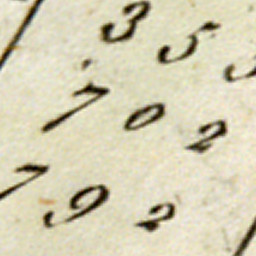 35
702
792